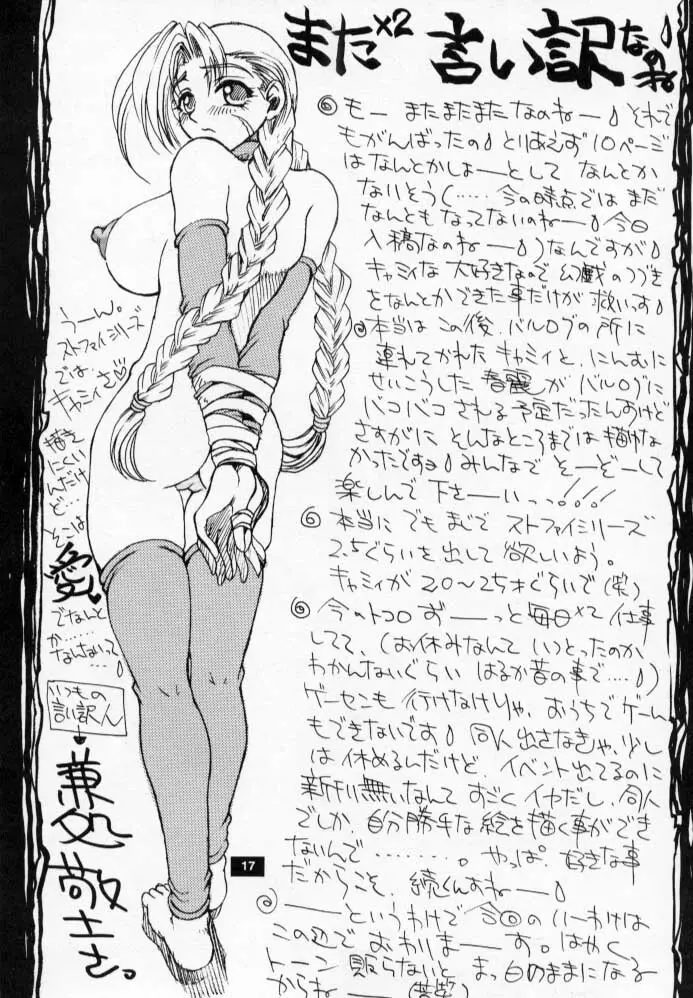 まだ×2 言い訳なのね
◎もー まだまだまだなのねー それで
もがんばったの とりあえず10ページ
はなんとかしよーとして なんとか
ないそう(……今の時点では まだ
なんともなってないのねー 今日
入稿なのねー)なんですが
キャミィな 大好きなので 幻戯のつづき
をなんとかできた事だけが 救いっす
◎本当は この後、バルログの所に
連れてかれたキャミィと、にんむに
せいこうした 春麗が バルログに
バコバコ される予定だったんすけど
さすがに そんなところまでは 描けな
かったですョ みんなで そーぞーして
楽しんで 下さーいっっ!!!
◎本当に でもまじで ストファイシリーズ
2.5ぐらいを出して 欲しいよう。
キャミィが 20〜25才ぐらいで(笑)
◎今のトコロ ずーーっと毎日×2 仕事
してて、(お休みなんて いつとったのか
わかんないぐらい はるか昔の事で……)
ゲーセンも 行けなけりゃ、おうちでゲーム
もできないです 同人出さなきゃ、少し
は 休めるんだけど、イベント出てるのに
新刊無いなんて すごく イヤだし、同人
でしか、自分勝手な絵を描く事ができ
ないんで………。やっぱ、好きな事
だからこそ、続くんすねー
◎ーーというわけで 今回の いーわけは
この辺で おわりまーす。はやく
トーン 貼らないと まっ白のままになる
からねー(苦笑)
うーん。
ストファイシリーズ
では、
キャミィさ♡
描き
にくい
んだけ
ど…
そこは
愛
でなんと
か……
なんないって
…
いつもの
言い訳人
兼処敬士さ。
17